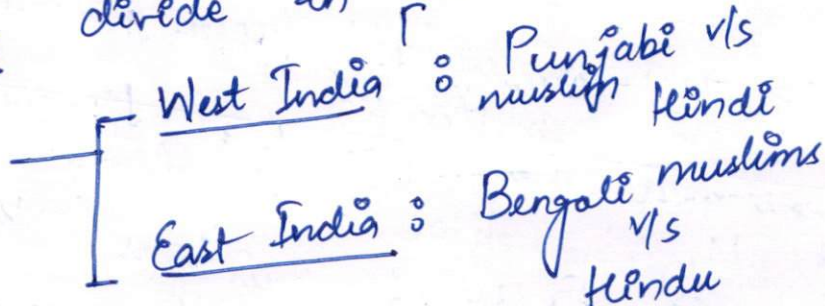 divide
West India : Punjabi v/s
muslim Hindi
East India : Bengali muslims
v/s
Hindu